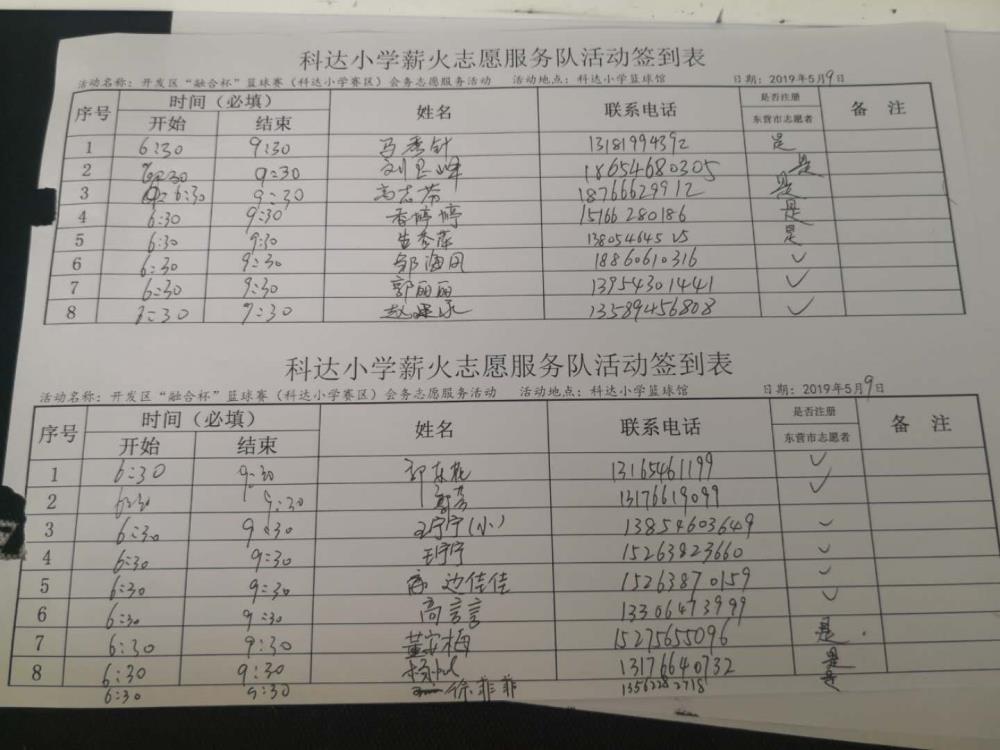 科达小学薪火志愿服务队活动签到表
活动名称：开发区“融合杯”篮球赛（科达小学赛区）会务志愿服务活动 活动地点：科达小学篮球馆 日期：2019年5月9日
序号 时间（必填） 姓名 联系电话 是否注册 备 注
开始 结束 东营市志愿者
1 6:30 9:30 马秀针 13181994392 是
2 6:30 9:30 18654680305 是
3 6:30 9:30 高志芳 18766629912 是
4 6:30 9:30 香婷婷 15166280186 是
5 6:30 9:30 是
6 6:30 9:30 邹海凤 18860610316 ✓
7 6:30 9:30 郭丽丽 13954301441 ✓
8 9:30 13589456808 ✓
科达小学薪火志愿服务队活动签到表
活动名称：开发区“融合杯”篮球赛（科达小学赛区）会务志愿服务活动 活动地点：科达小学篮球馆 日期：2019年5月9日
序号 时间（必填） 姓名 联系电话 是否注册 备 注
开始 结束 东营市志愿者
1 6:30 9:30 13165461199 ✓
2 6:30 9:30 13176619099 ✓
3 6:30 9:30 王宁宁(小) 13854603649 ✓
4 6:30 9:30 王宁宁 15263823660 ✓
5 6:30 9:30 边佳佳 15263870159 ✓
6 6:30 9:30 高言言 13306473999 ✓
7 6:30 9:30 董安梅 15275655096 是
8 6:30 9:30 13176640732 是
6:30 9:30 徐菲菲 13562282718 是